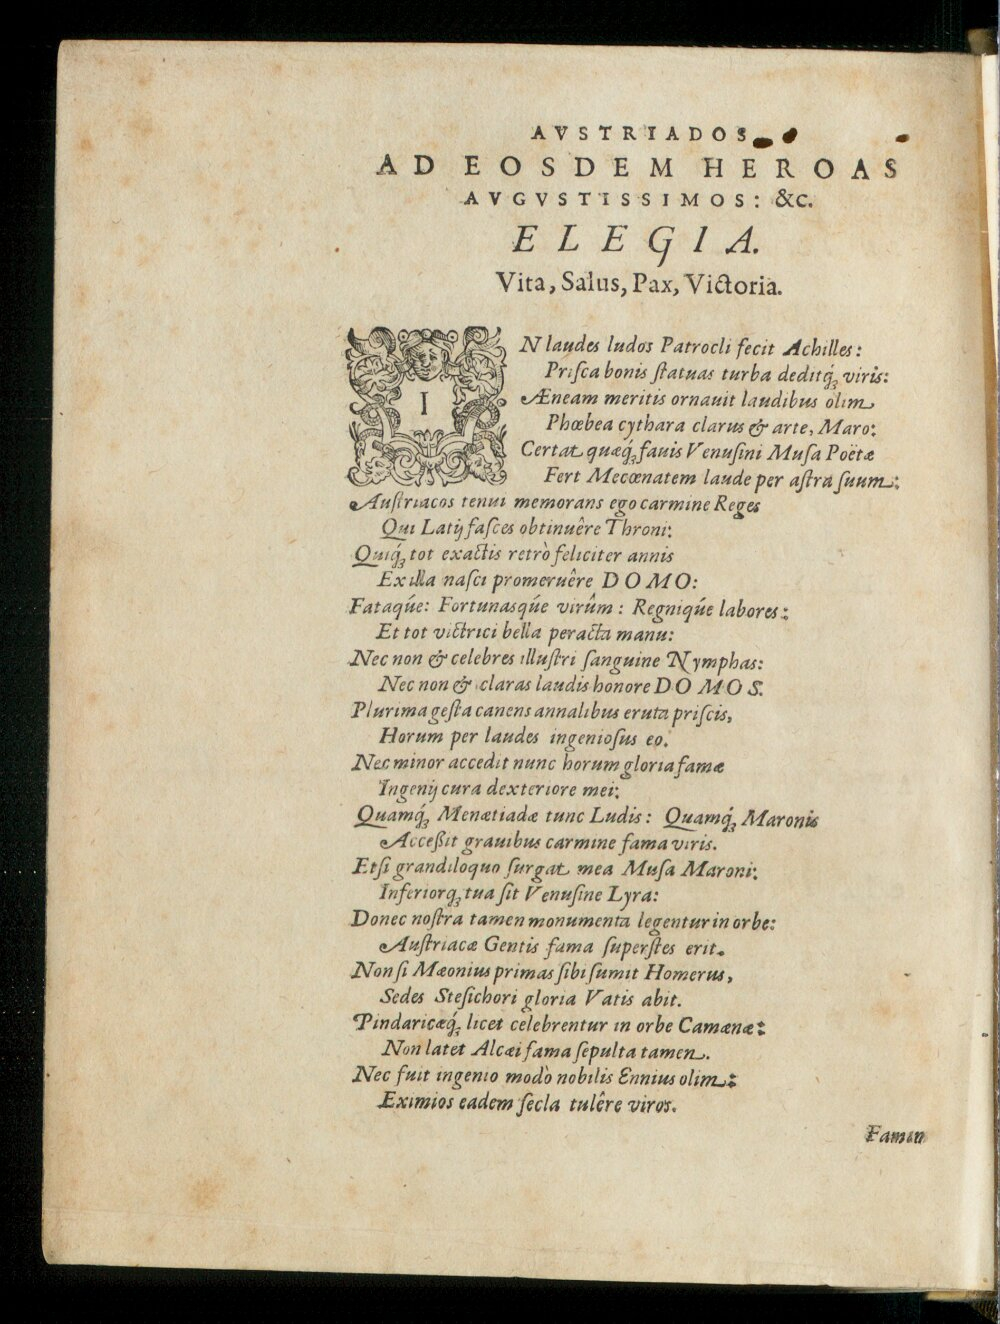 AVSTRIADOS
AD EOSDEM HEROAS
AVGVSTISSIMOS: &c.
ELEGIA.
Vita, Salus, Pax, Victoria.
IN laudes ludos Patrocli fecit Achilles:
Prisca bonis statuas turba deditq́ꝫ viris:
Æneam meritis ornauit laudibus olim
Phœbea cythara clarus & arte, Maro:
Certat quæq́ꝫ fauis Venusini Musa Poëtæ
Fert Mecœnatem laude per astra suum:
Austriacos tenui memorans ego carmine Reges
Qui Latij fasces obtinuêre Throni:
Quiq́ꝫ tot exactis retrò feliciter annis
Ex illa nasci promeruêre DOMO:
Fataqúe: Fortunasqúe virûm: Regniqúe labores:
Et tot victrici bella peracta manu:
Nec non & celebres illustri sanguine Nymphas:
Nec non & claras laudis honore DOMOS.
Plurima gesta canens annalibus eruta priscis,
Horum per laudes ingeniosus eo.
Nec minor accedit nunc horum gloria famæ
Ingenij cura dexteriore mei:
Quamq́ꝫ Menætiadæ tunc Ludis: Quamq́ꝫ Maronis
Acceßit grauibus carmine fama viris.
Etsi grandiloquo surgat mea Musa Maroni:
Inferiorqꝫ tua sit Venusine Lyra:
Donec nostra tamen monumenta legentur in orbe:
Austriacæ Gentis fama superstes erit.
Non si Mæonius primas sibi sumit Homerus,
Sedes Stesichori gloria Vatis abit.
Pindaricæq́ꝫ licet celebrentur in orbe Camænæ:
Non latet Alcæi fama sepulta tamen.
Nec fuit ingenio modò nobilis Ennius olim:
Eximios eadem secla tulêre viros.